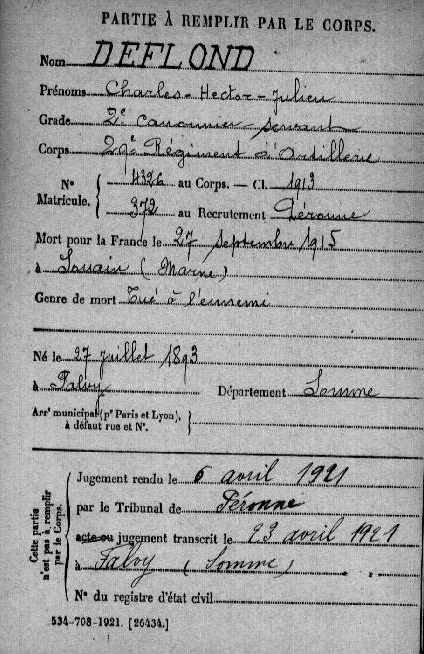 PARTIE À REMPLIR PAR LE CORPS.
Nom DEFLOND
Prénoms Charles-Hector-Julien
Grade 2e canonnier-servant
Corps 29e Régiment d'Artillerie
No 4326 au Corps. — Cl. 1913
Matricule. 372 au Recrutement Péronne
Mort pour la France le 27 septembre 1915
à Souain (Marne)
Genre de mort Tué à l'ennemi
Né le 27 juillet 1893
à Falvy Département Somme
Arrt municipal (pr Paris et Lyon),
à défaut rue et No.
Cette partie
n'est pas à remplir
par le Corps.
Jugement rendu le 6 avril 1921
par le Tribunal de Péronne
acte ou jugement transcrit le 23 avril 1921
à Falvy (Somme)
No du registre d'état civil
534-708-1921. [26434.]